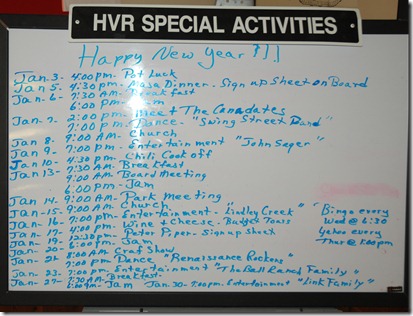 HVR SPECIAL ACTIVITIES
Happy New Year!!!
Jan. 3- 4:00 pm- Pot Luck
Jan 5- 4:30 pm- Dinner- Sign up Sheet on Board
Jan. 6- 7:30 AM- Breakfast
6:00 pm- Jam
Jan- 7- 2:00 pm- Meet The Canadates
7:00 pm- Dance- "Swing Street Band"
Jan 8- 9:00 AM- Church
Jan 9- 7:00 pm- Entertainment "John Sager"
Jan 10- 4:30 pm- Chili Cook off
Jan 13- 7:30 AM- Breakfast
9:00 AM- Board Meeting
6:00 pm- Jam
Jan 14- 9:00 AM- Park Meeting
Jan-15- 9:00 AM- Church
Jan-16- 7:00 pm- Entertainment- "Lindley Creek"
Jan-17- 4:00 pm- Wine & Cheese- Budget Tours
Jan-19- 12:30 pm- Peter Piper- Sign up sheet
Jan-20- 6:00 pm- Jam
Jan-21 8:00 AM Craft Show
7:00 pm Dance "Renaissance Rockers"
Jan-23- 7:00 pm- Entertainment "The Ball Family"
Jan-27- 7:30 AM Breakfast-
6:00 pm Jam Jan. 30- 7:00 pm- Entertainment "Link Family"
Bingo every
Wed @ 6:30
every
Thur @ 1:00 pm